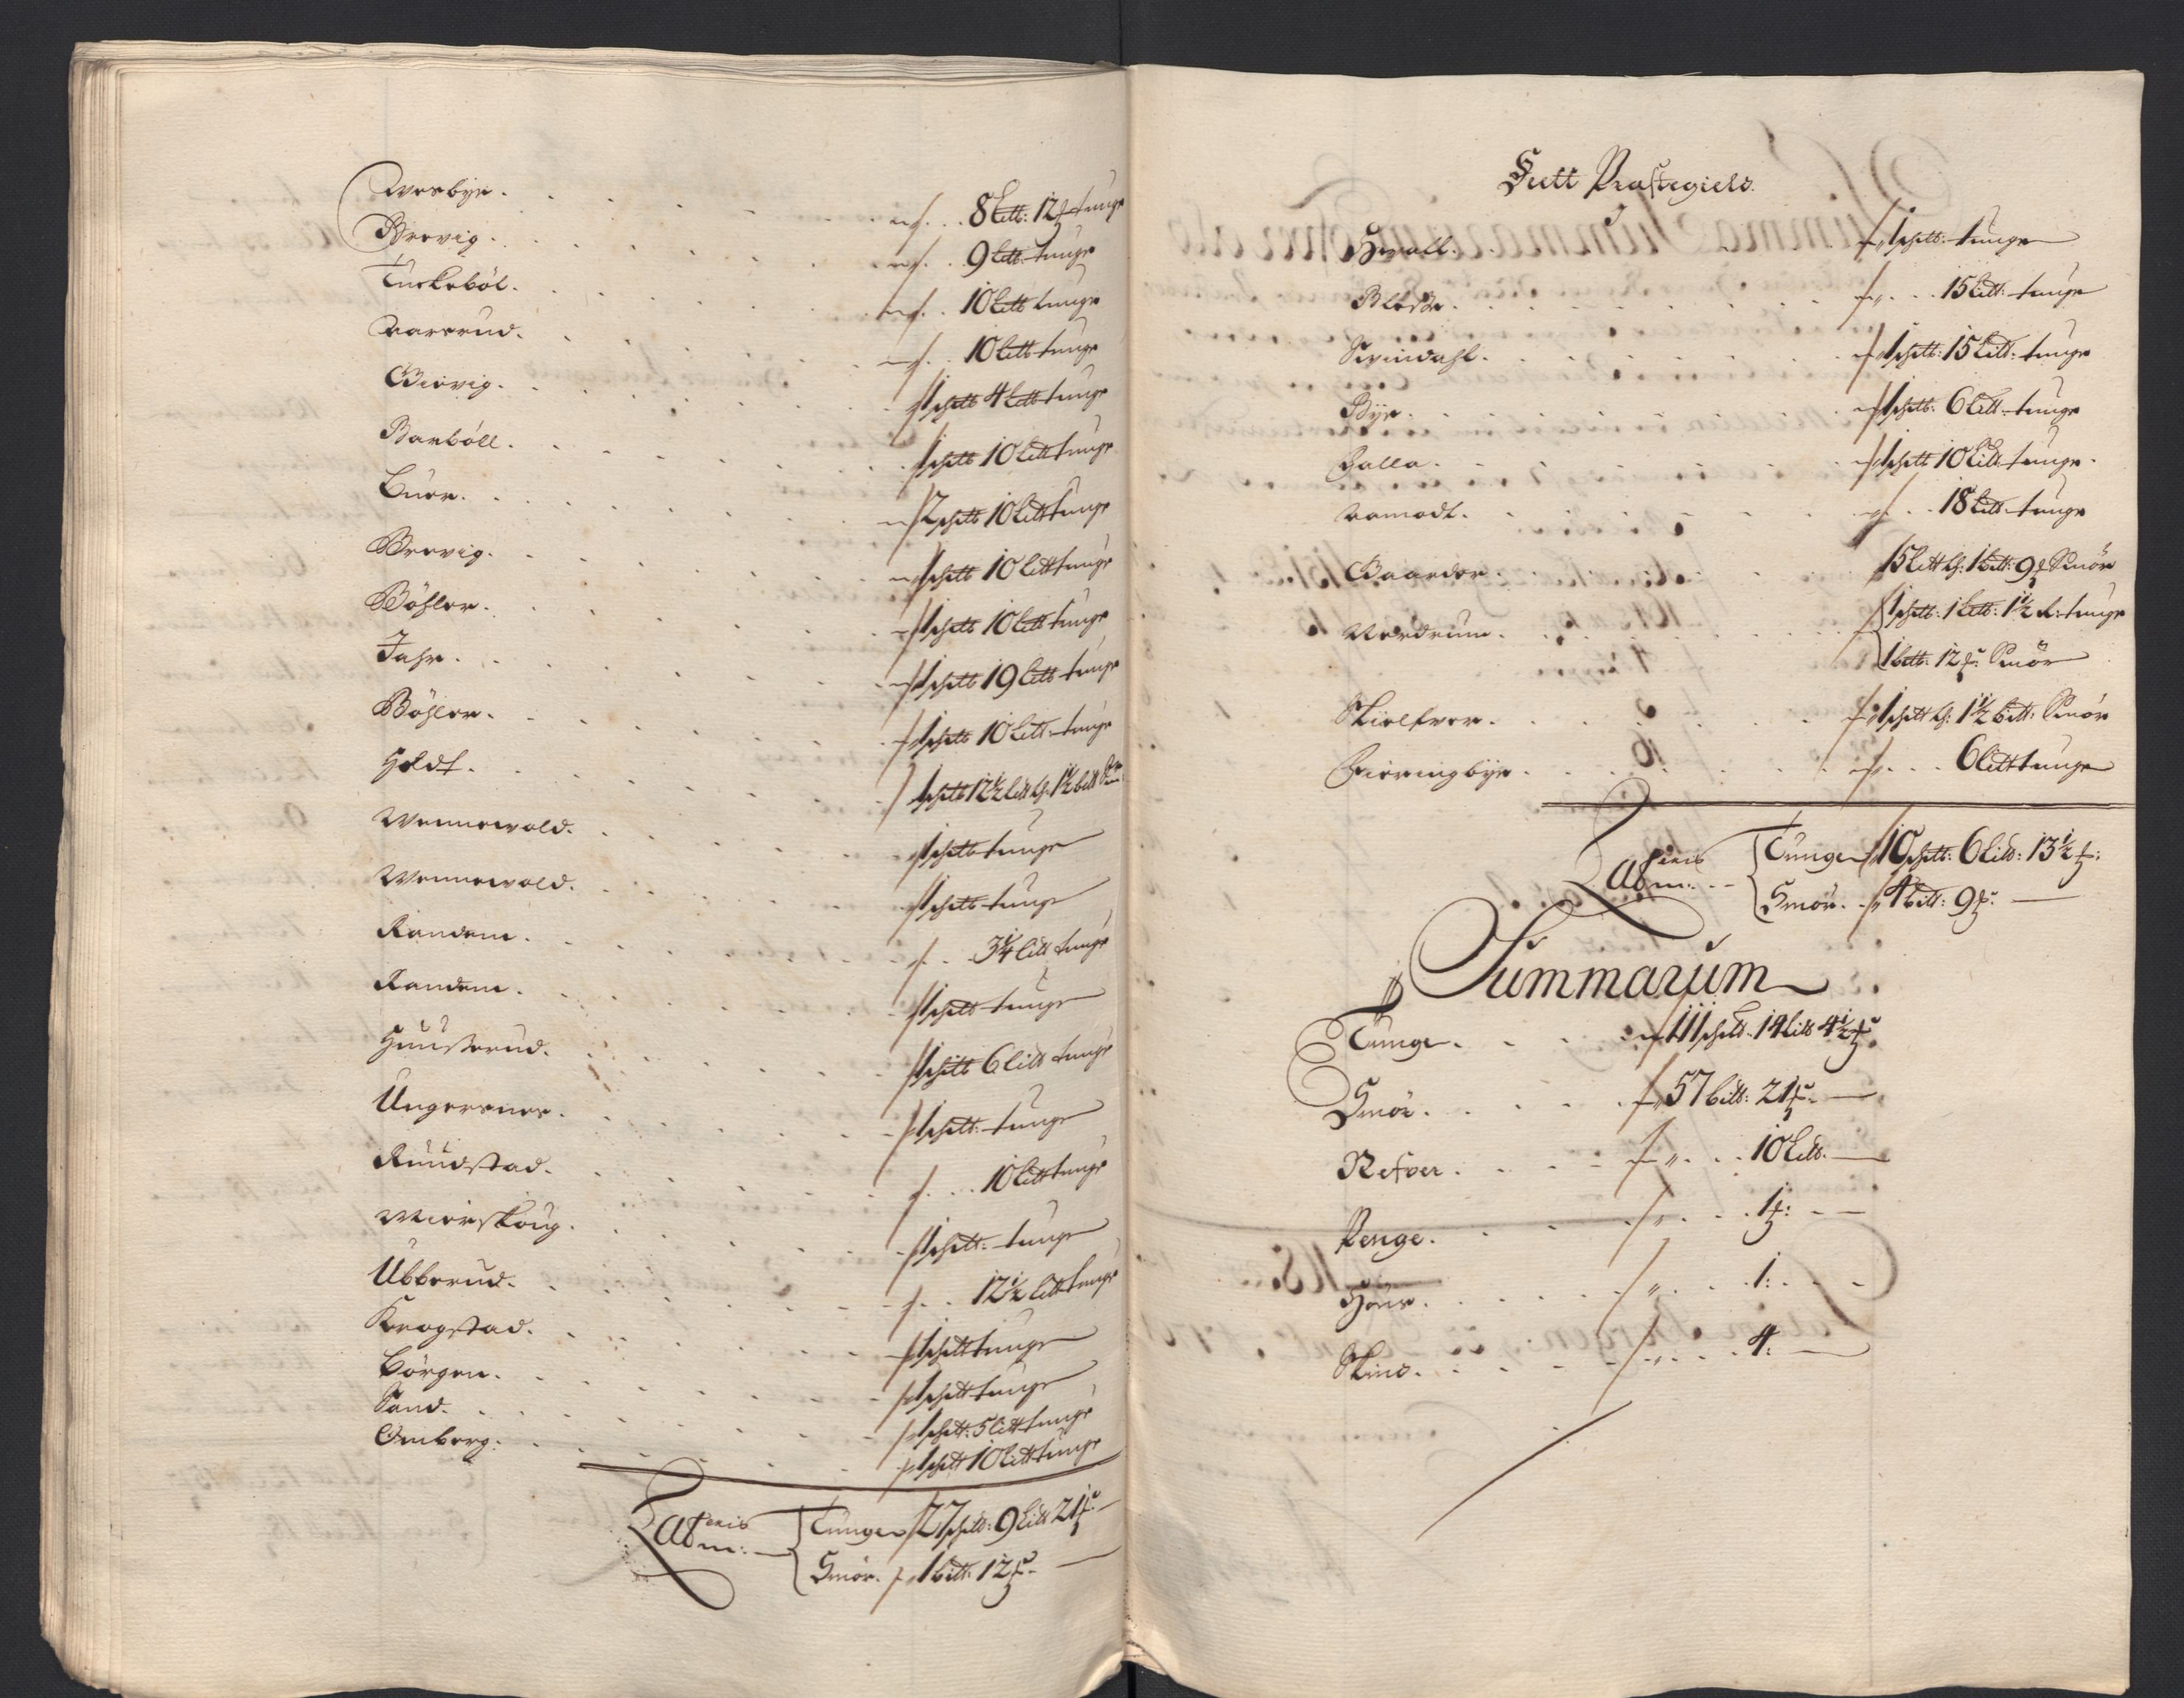 Wesbye . . . 8 Lett: 12 f tunge
Brevig . . . 9 Lett tunge
Turkebôl . . . 10 Lett tunge
Aarerud . . . 10 Lett tunge
Giervig . . . 1 schett 4 Lett tunge
Barbôll . . . 1 schett 10 Lett tunge
Buer . . . 2 schett 10 Lett tunge
Brevig . . . 1 schett 10 Lett tunge
Böhler . . . 1 schett 10 Lett tunge
Jahr . . . 1 schett 19 Lett tunge
Böhler . . . 1 schett 10 Lett: tunge
Holdt . . . 1 schett 12½ Lett h: 1½ bett Smör
Wennewold . . . 1 schett tunge
Wennewold . . . 1 schett tunge
Randem . . . 3¼ Lett tunge
Randem . . . 1 schett tunge
Huusserud . . . 1 schett 6 Lett tunge
Ungersnes . . . 1 schett: tunge
Ruudstad . . . 10 Lett tunge
Mierskoug . . . 1 schett: tunge
Ubberud . . . 12½ Lett tunge
Krogstad . . . 1 schett tunge
Börgen . . . 1 schett tunge
Sand . . . 1 schett: 5 Lett tunge
Omberg . . . 1 schett 10 Lett tunge
Lateris
m: Tunge 27 schett: 9 Lett 21 f
Smör . 1 bett: 12 f
Praste gield
Hwall . . . 1 schett: tunge
. . . 15 Lett: tunge
Swindahl . . . 1 schett: 15 Lett: tunge
Bye . . . 1 schett: 6 Lett tunge
Falla . . . 1 schett 10 Lett tunge
Aamodt . . . 18 Lett tunge
Gaarder . . . 15 Lett h: 1 bett: 9 f Smör
Nordrum . . . 1 schett: 1 Lett: 1½ f: tunge
1 bett: 12 f: Smör
Skielfver . . . 1 schett h: 1½ bett: Smör
Fieringbye . . . 6 Lett tunge
Lateris
m: Tunge 10 schett: 6 Lett: 13½ f:
Smör . 4 bett: 9 f:
Summarum
Tunge . . . 111 schett. 14 Lett 4½ f
Smör . . . 57 bett: 21 f.
Refver . . . 10 Lett.
Penge . . . 1 f:
Hôns . . . 1:
Skind . . . 4: